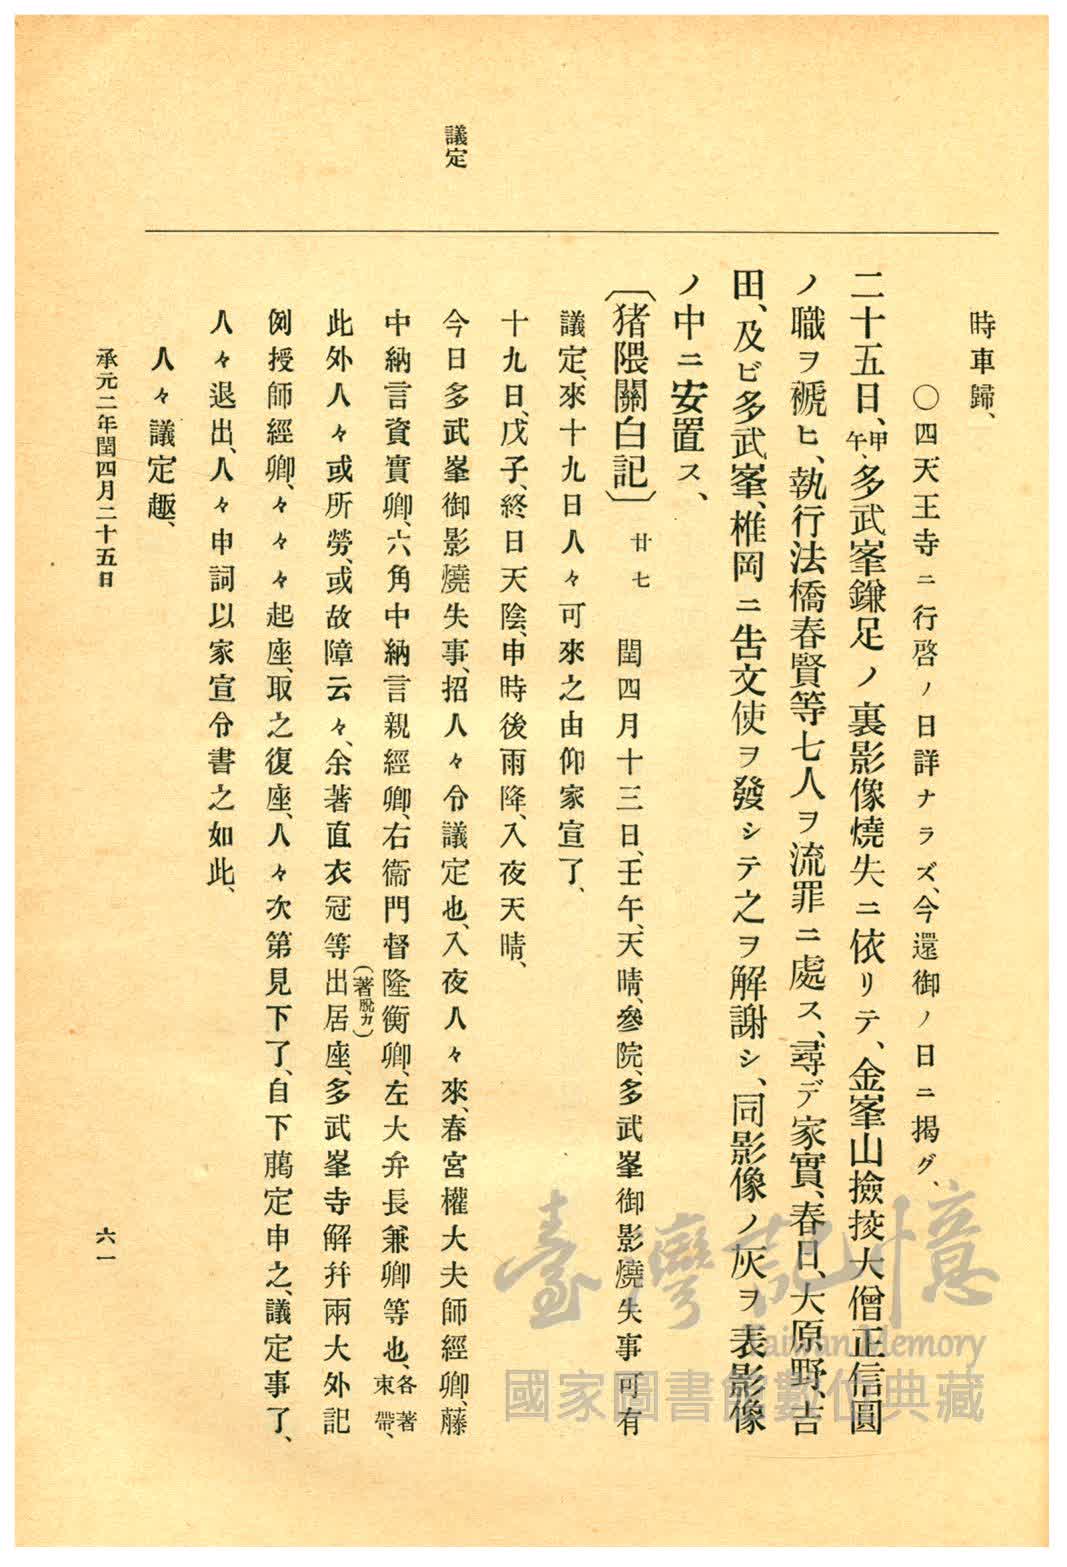 時車歸、
〇四天王寺ニ行啓ノ日詳ナラズ、今還御ノ日ニ揭グ、
二十五日、甲午、多武峯鎌足ノ裏影像燒失ニ依リテ、金峯山撿挍大僧正信圓
ノ職ヲ褫ヒ、執行法橋春賢等七人ヲ流罪ニ處ス、尋デ家實、春日、大原野、吉
田、及ビ多武峯、椎岡ニ告文使ヲ發シテ之ヲ解謝シ、同影像ノ灰ヲ表影像
ノ中ニ安置ス、
〔猪隈關白記〕 廿七 閏四月十三日、壬午、天晴、參院、多武峯御影燒失事可有
議定、來十九日人々可來之由仰家宣了、
十九日、戊子、終日天陰、申時後雨降、入夜天晴、
今日多武峯御影燒失事、招人々令議定也、入夜人々來、春宮權大夫師經卿、藤
中納言資實卿、六角中納言親經卿、右衞門督隆衡卿、左大弁長兼卿等也、各著束帶、
此外人々或所勞、或故障云々、余著直衣冠等出居座、(著脫カ)多武峯寺解幷兩大外記
例授師經卿、々々々起座、取之復座、人々次第見下了、自下﨟定申之、議定事了、
人々退出、人々申詞以家宣令書之如此、
人々議定趣、
議定
承元二年閏四月二十五日
六一
臺灣記憶
Taiwan Memory
國家圖書館數位典藏